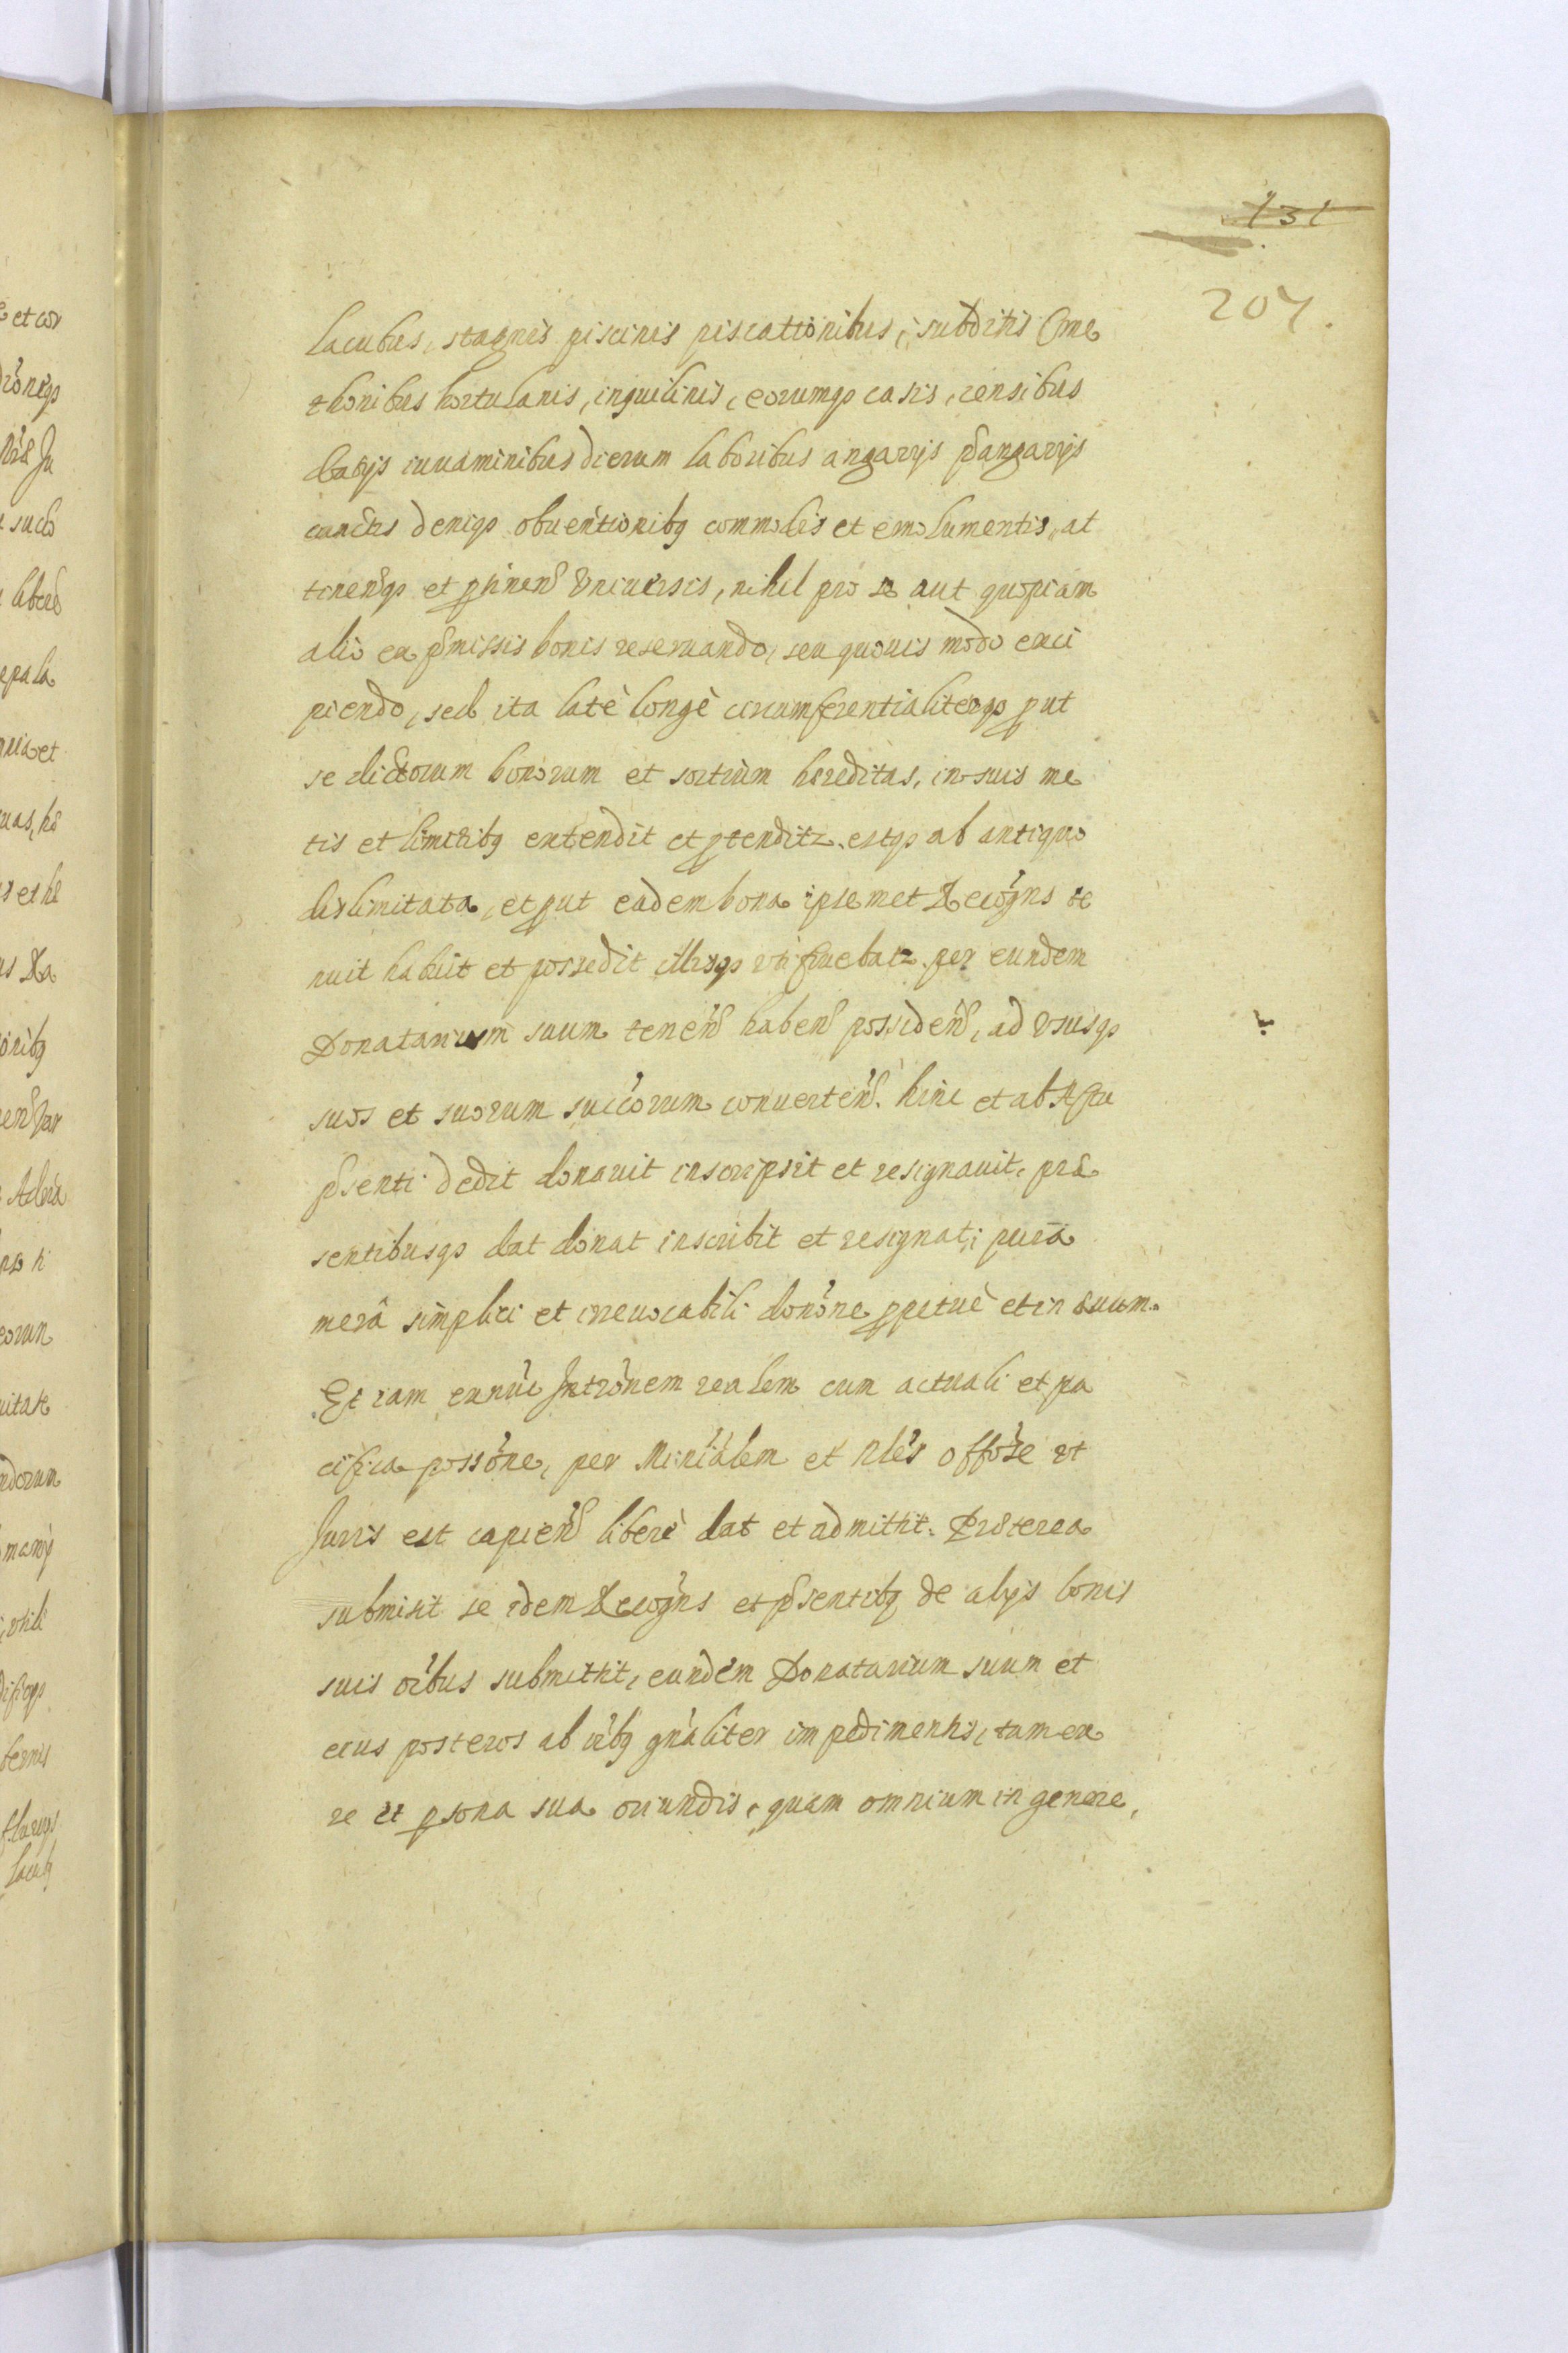 131
207.
lacubus, stagnis piscinis piscationibus, subditis Cme
thonibus hortulanis, inquilinis, eorumqʒ casis, censibus
datijs iuuaminibus dierum laboribus angarijs pangarijs
cunctis deniqʒ obuentionibʒ commodis et emolumentis, at
tinenqʒ et ptinen vniuersis, nihil pro se aut quopiam
alio ex pmissis bonis reseruando, seu quouis modo exci
piendo, sed ita latè longè circumferentialiterqʒ put
se dictorum bonorum et sortium hereditas, in suis me
tis et limitibʒ extendit et ptenditz. estqʒ ab antiquo
dislimitata, et put eadem bona ipsemet Recogns te
nuit habuit et possedit illisqʒ vti fruebatz. per eundem
Donatarium suum tenen haben possiden, ad vsusqʒ
suos et suorum succorum conuerten. hinc et ab Actu
psenti dedit donauit inscripsit et resignauit, præ
sentibusqʒ dat donat inscribit et resignat, purâ
merâ simplici et irreuocabili donone ppetuè et in æuum.
Et iam exnunc Intronem realem cum actuali et pa
cifica possone, per Minialem et Nles offose vt
Juris est capien liberè dat et admittit. Præterea
submisit se idem Recogns et psentibʒ de alijs bonis
suis oibus submittit, eundem Donatarium suum et
eius posteros ab oibʒ gnaliter impedimentis, tam ex
re et psona sua oriundis, quam omnium in genere,